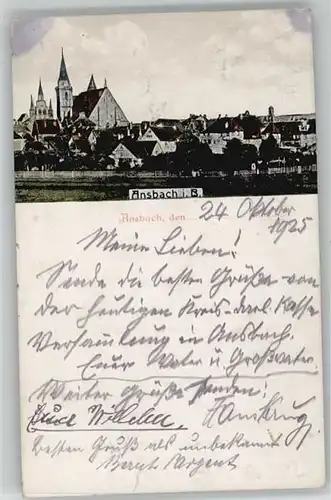 Ansbach i. B.
Ansbach, den 24 Oktober
1925
Meine Lieben!
Sende die besten Grüße von
der heutigen Kreis-darl. Kasse
Versammlung in Ansbach.
Euer Vater u. Großvater.
Weiter Grüße senden:
besten Gruß als unbekannt